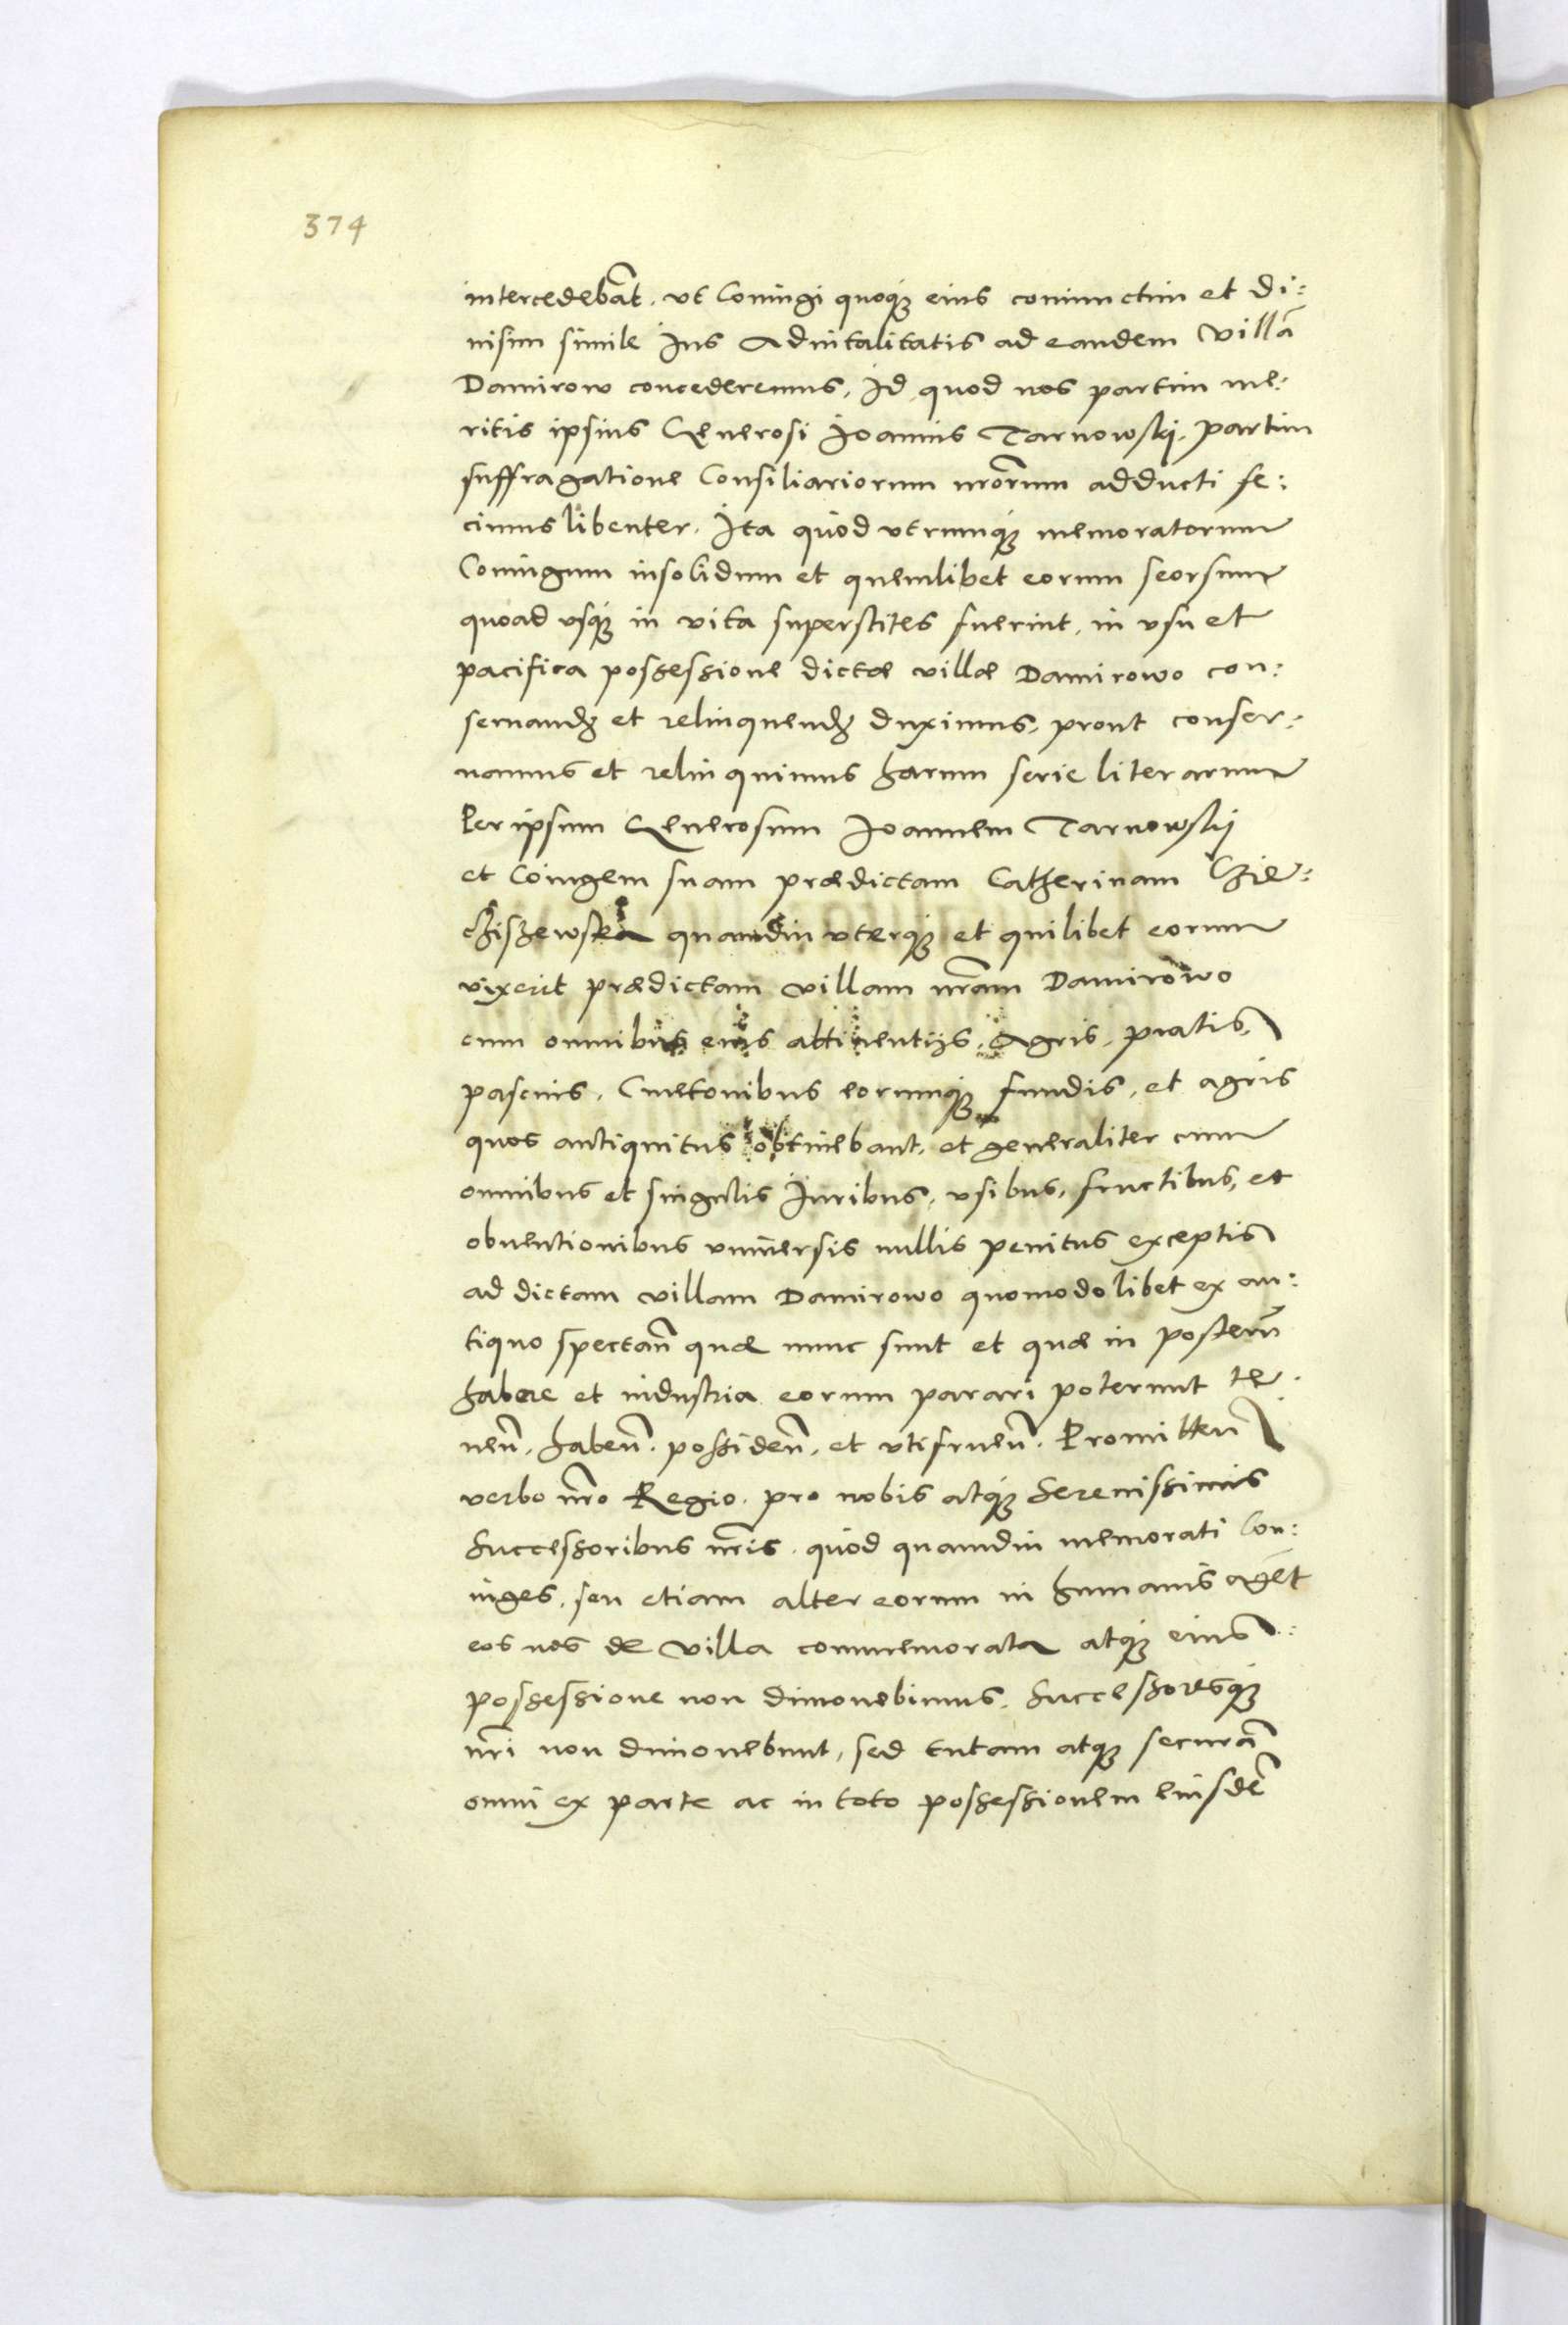 374
intercedebāt. vt Coniugi quoq́; eius coniunctim et di:
uisim simile Ius Aduitalitatis ad eandem Villā
Damirow concederemus. Id quod nos partim me:
ritis ipsius Generosi Joannis Tarnowskj. partim
suffragatione Consiliariorum nr̄orum adducti fe:
cimus libenter. Ita quòd vtrumq́; memoratorum
Coniugum insolidum et quemlibet eorum seorsum
quoad vsq́; in vita superstites fuerint, in vsu et
pacifica possessione dictæ villæ Damirowo con:
seruand; et relinquend; duximus, prout conser:
uamus et relinquimus harum serie literarum
Per ipsum Generosum Joannem Tarnowskj
et Coiugem suam prædictam Catherinam Czie:
chiszewska quamdiu vterq́; et quilibet eorum
vixerit prædictam villam nr̄am Damirowo
cum omnibus eius attinentijs, Agris, pratis,
pascuis, Cmetonibus eorumq́; fundis, et agris
quos antiquitus obtinebant, et generaliter cum
omnibus et singulis Iuribus, vsibus, fructibus, et
obuentionibus vniuersis nullis penitus exceptis
ad dictam villam Damirowo quomodolibet ex an:
tiquo spectan̄ quæ nunc sunt et quæ in posterū
habere et industria eorum parari poterunt te:
nen̄. haben̄. possiden̄. et vtifruen̄. Promitten̄
verbo nr̄o Regio. pro nobis atq́; Serenissimis
Successoribus nr̄is. quòd quamdiu memorati Con:
iuges, seu etiam alter eorum in humanis agēt
eos nos de Villa commemorata atq́; eius
possessione non dimouebimus, Successoresq́;
nr̄i non dimouebunt, sed tutam atq; securā
omni ex parte ac in toto possessionem eiusdē